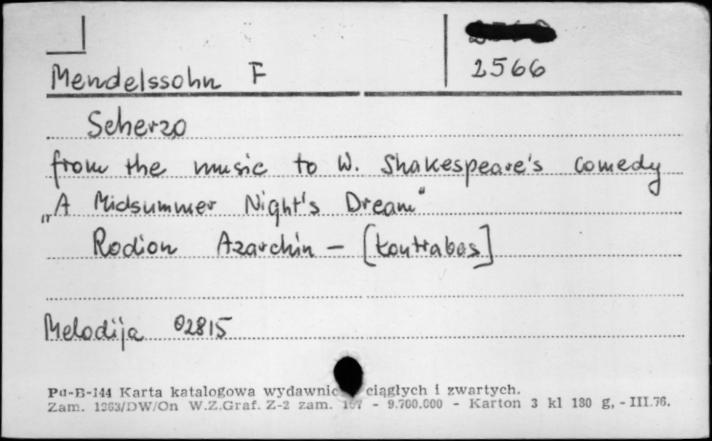 Mendelssohn F
2566
Scherzo
from the music to W. Shakespeare's comedy
„A Midsummer Night's Dream"
Rodion Azarchin - [kontrabas]
Melodija 02815
Pu-B-144 Karta katalogowa wydawnic ciągłych i zwartych.
Zam. 1263/DW/On W.Z.Graf. Z-2 zam. - 9.700.000 - Karton 3 kl 180 g, - III.76.